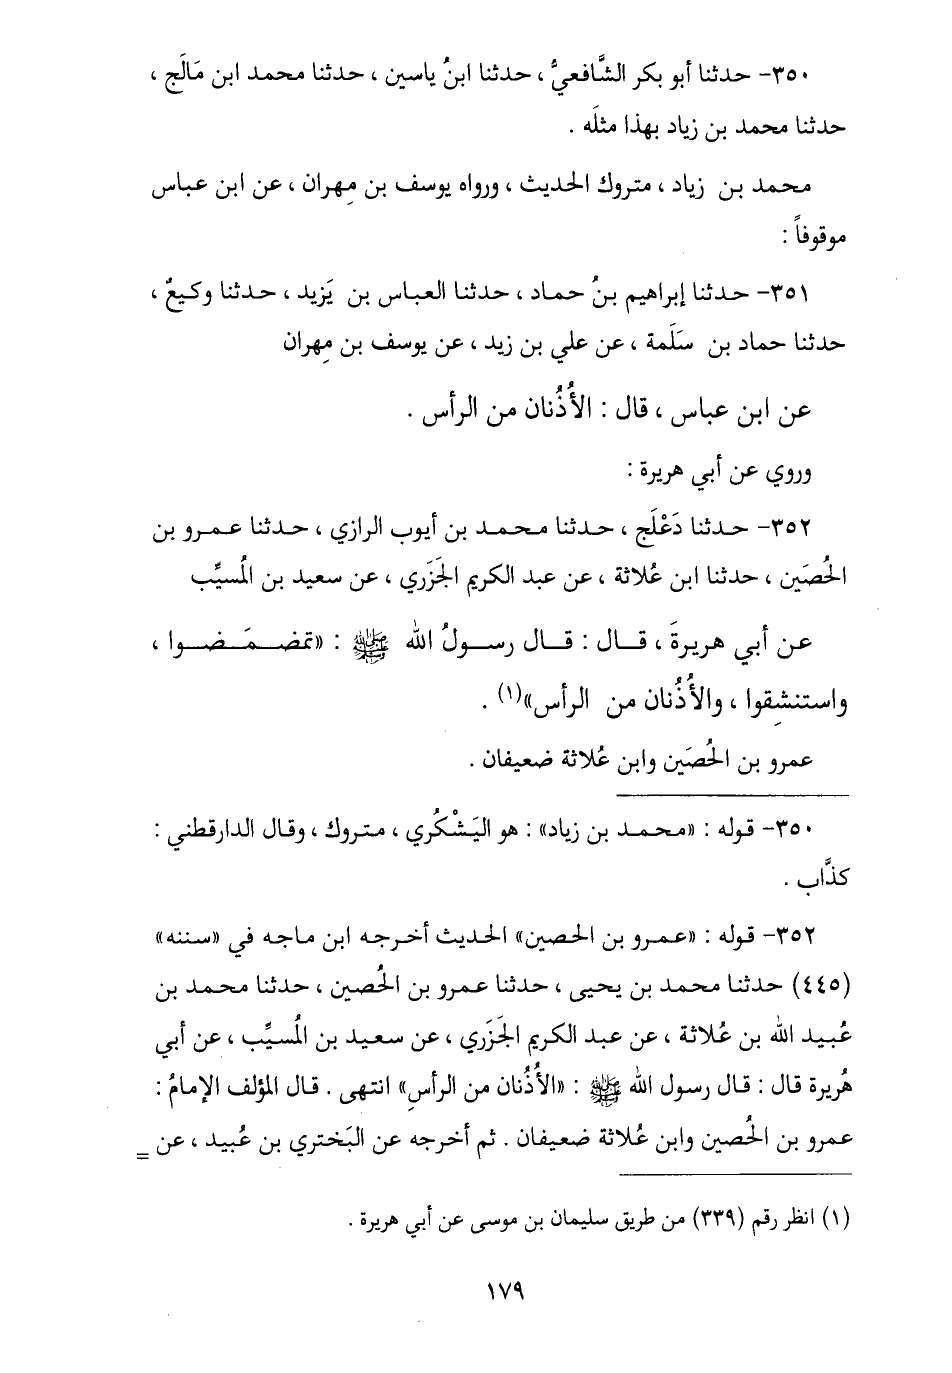 ٣٥٠- حدثنا أبو بكر الشَّافعيُّ ، حدثنا ابنُ ياسين ، حدثنا محمد ابن مَالَج ،
حدثنا محمد بن زياد بهذا مثلَه .
محمد بن زياد ، متروك الحديث ، ورواه يوسف بن مِهران ، عن ابن عباس
موقوفاً :
٣٥١- حدثنا إبراهيم بنُ حماد ، حدثنا العباس بن يَزيد ، حدثنا وكيعٌ ،
حدثنا حماد بن سَلَمة ، عن علي بن زيد ، عن يوسف بن مِهران
عن ابن عباس ، قال : الأُذُنان من الرأس .
وروي عن أبي هريرة :
٣٥٢- حدثنا دَعْلَج ، حدثنا محمد بن أيوب الرازي ، حدثنا عمرو بن
الحُصَين ، حدثنا ابن عُلاثة ، عن عبد الكريم الجَزَري ، عن سعيد بن المُسيِّب
عن أبي هريرةَ ، قال : قال رسولُ الله ﷺ : «تمضمَضوا ،
واستنشِقوا ، والأُذُنان من الرأس»(١) .
عمرو بن الحُصَين وابن عُلاثة ضعيفان .
٣٥٠- قوله : «محمد بن زياد» : هو اليَشْكُري ، متروك ، وقال الدارقطني :
كذَّاب .
٣٥٢- قوله : «عمرو بن الحصين» الحديث أخرجه ابن ماجه في «سننه»
(٤٤٥) حدثنا محمد بن يحيى ، حدثنا عمرو بن الحُصين ، حدثنا محمد بن
عُبيد الله بن عُلاثة ، عن عبد الكريم الجَزَري ، عن سعيد بن المُسيِّب ، عن أبي
هُريرة قال : قال رسول الله ﷺ : «الأُذُنان من الرأسِ» انتهى . قال المؤلف الإمامُ :
عمرو بن الحُصين وابن عُلاثة ضعيفان . ثم أخرجه عن البَختري بن عُبيد ، عن =
(١) انظر رقم (٣٣٩) من طريق سليمان بن موسى عن أبي هريرة .
١٧٩